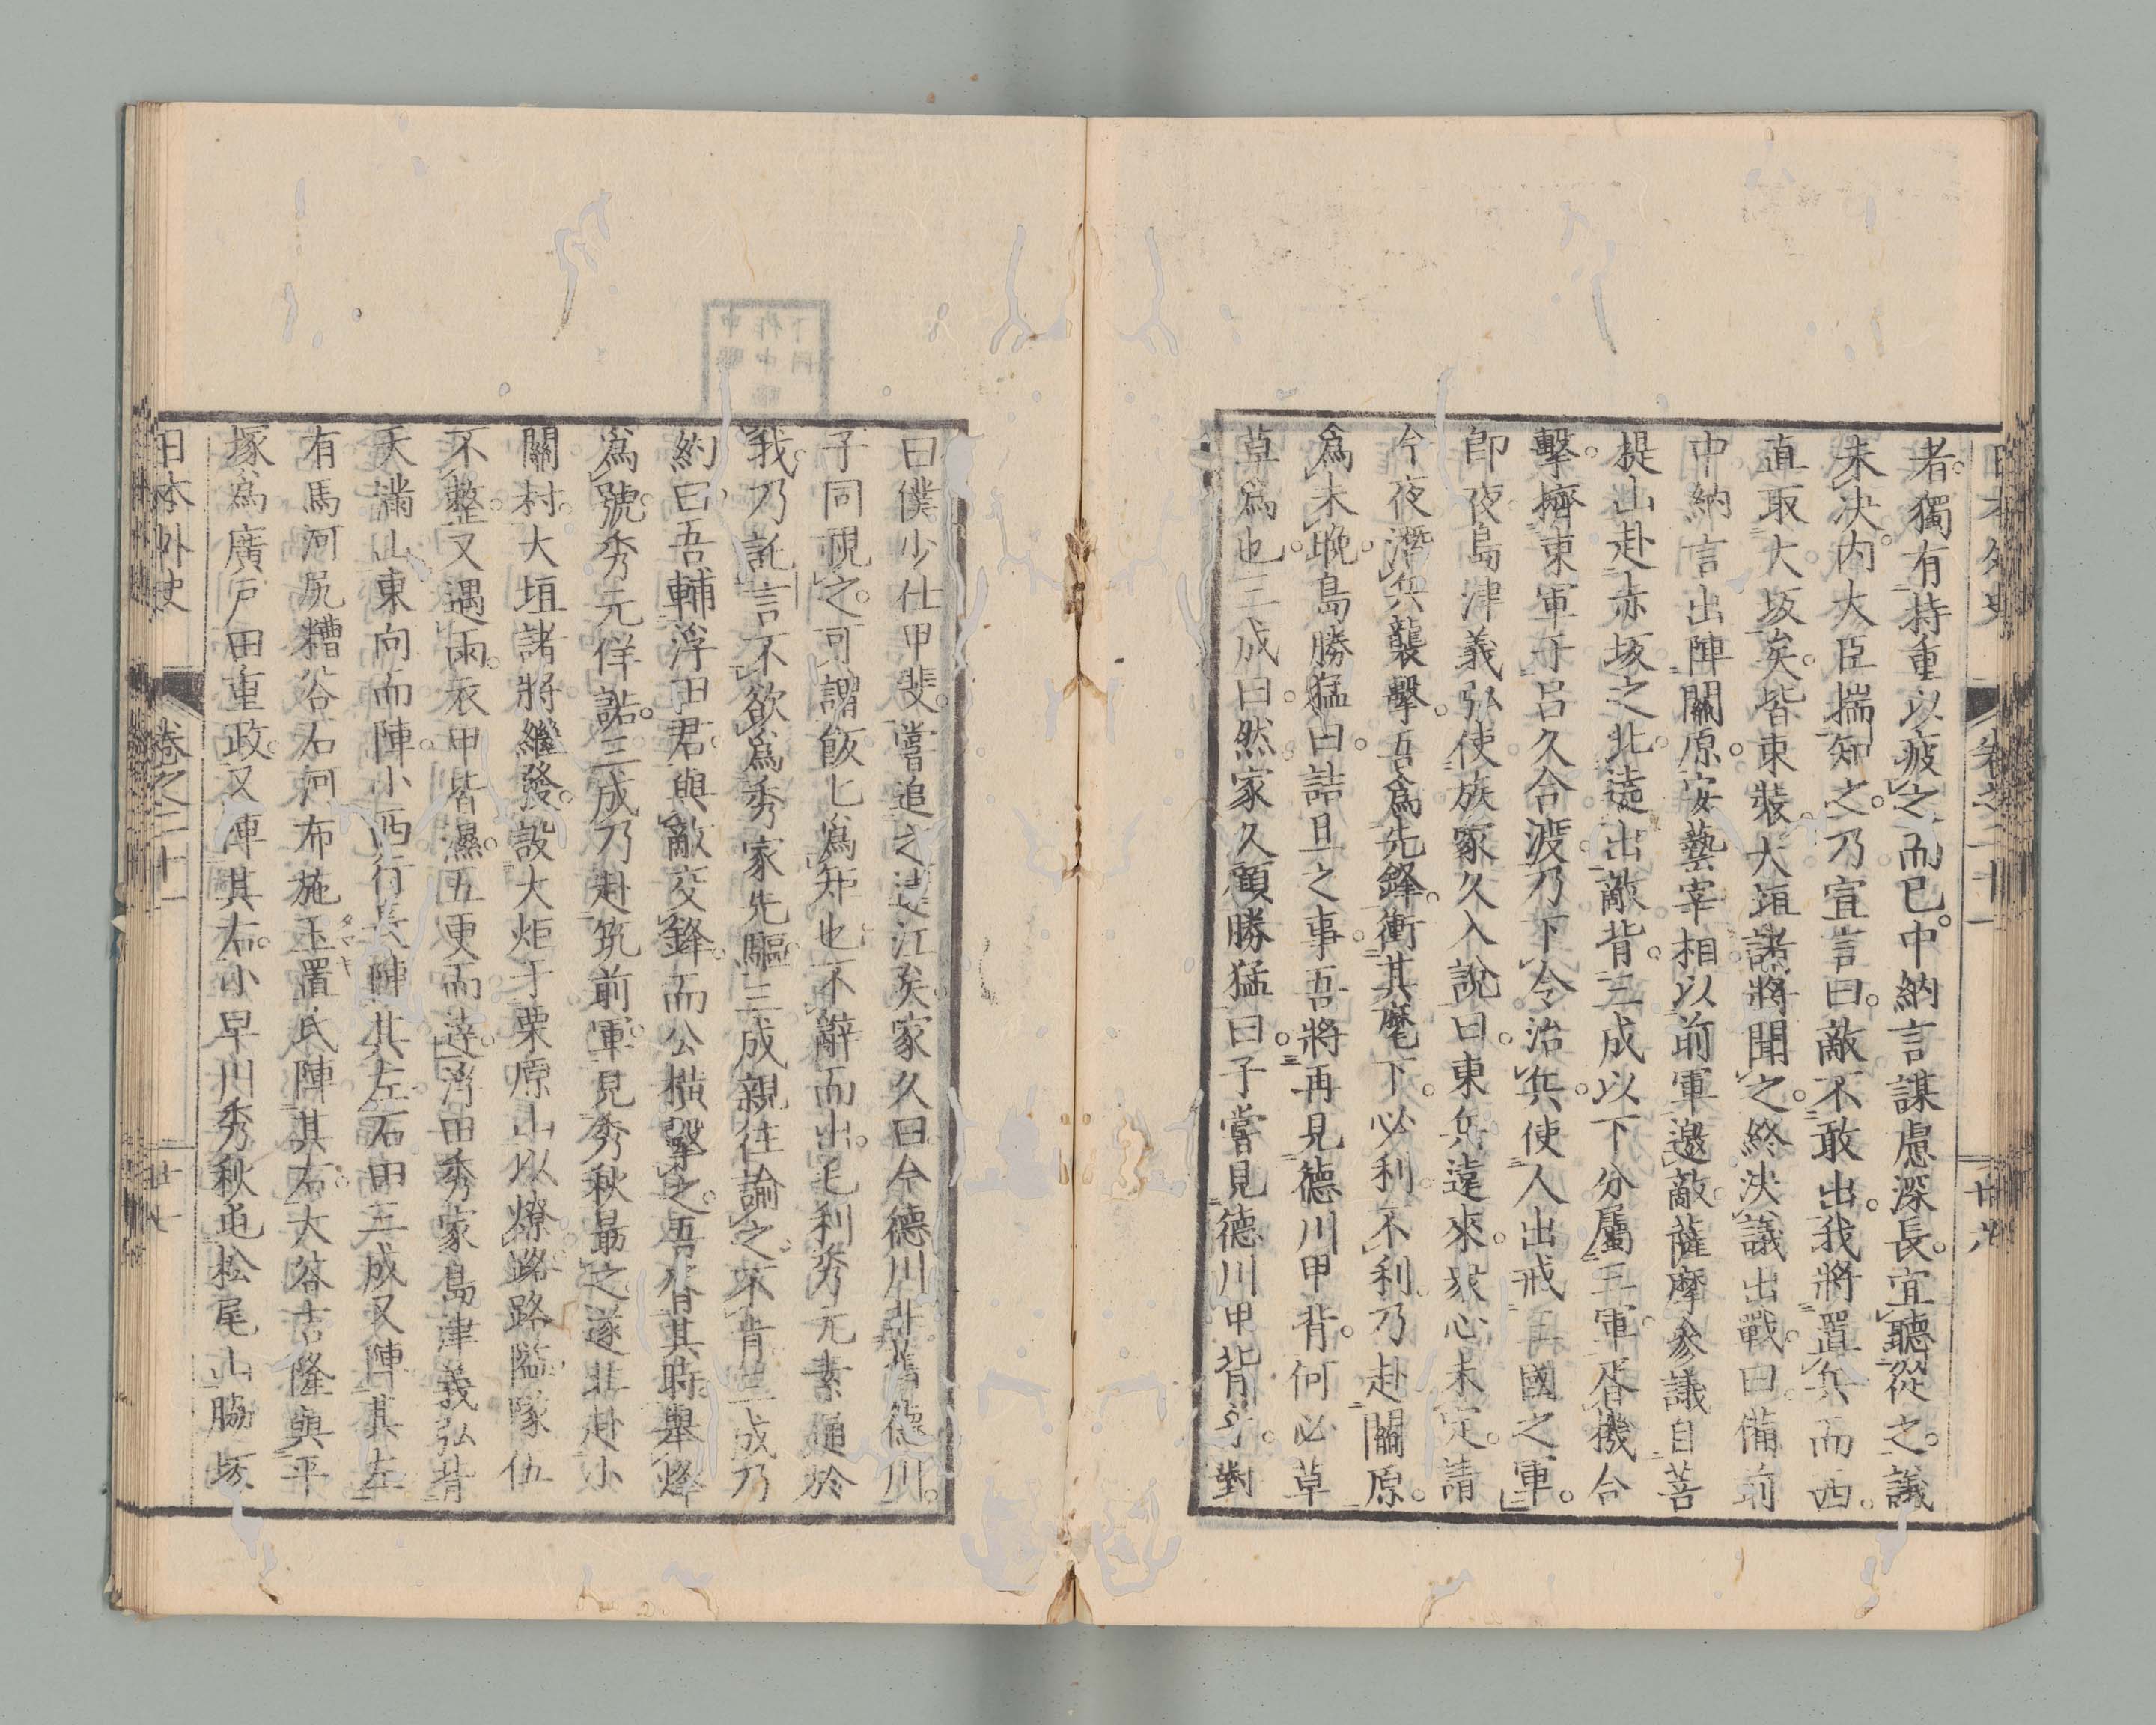 日本外史 卷之二十一
者。獨有持重以疲之而已。中納言謀慮深長。宜聽從之。議
未决。内大臣揣知之。乃宣言曰。敵不敢出。我將置兵而西。
直取大坂矣。皆束裝。大垣諸將聞之。終決議出戰。曰。備前
中納言出陣關原。安藝宰相以前軍邀敵。薩摩參議自菩
提山赴赤坂之北。遶出敵背。三成以下分屬三軍。胥機合
擊。擠東軍于呂久合渡。乃下令治兵。使人出戒三國之軍。
卽夜島津義弘使族家久入說曰。東兵遠來。衆心未定。請
今夜潛兵襲擊。吾爲先鋒。衝其麾下。必利。不利。乃赴關原。
爲未晩。島勝猛曰。詰旦之事。吾將再見德川甲背。何必草
草爲也。三成曰。然。家久顧勝猛曰。子嘗見德川甲背乎。對
曰僕少仕甲斐。嘗追之遠江矣。家久曰今德川非舊德川。
子同視之。可謂飯匕爲知也。不辭而出。毛利秀元素通於
我。乃託言不欲爲秀家先驅。三成親往諭之。不肯。三成乃
約曰吾輔浮田君。與敵交鋒。而公橫擊之。吾胥其時。擧烽
爲號。秀元佯諾。三成乃赴筑前軍。見秀秋勗之。遂北赴小
關村。大垣諸將繼發。設大炬于栗原山。以燎路。路隘。隊伍
不整。又遇雨。衣甲皆濕。五更而達。浮田秀家島津義弘背
天滿山東向而陣。小西行長陣其左。石田三成又陣其左
有馬河尻糟谷石河布施玉置氏陣其右。大谷吉隆與平
塚爲廣戸田重政。又陣其右。小早川秀秋屯松尾山脇坂
日本外史 卷之二十一